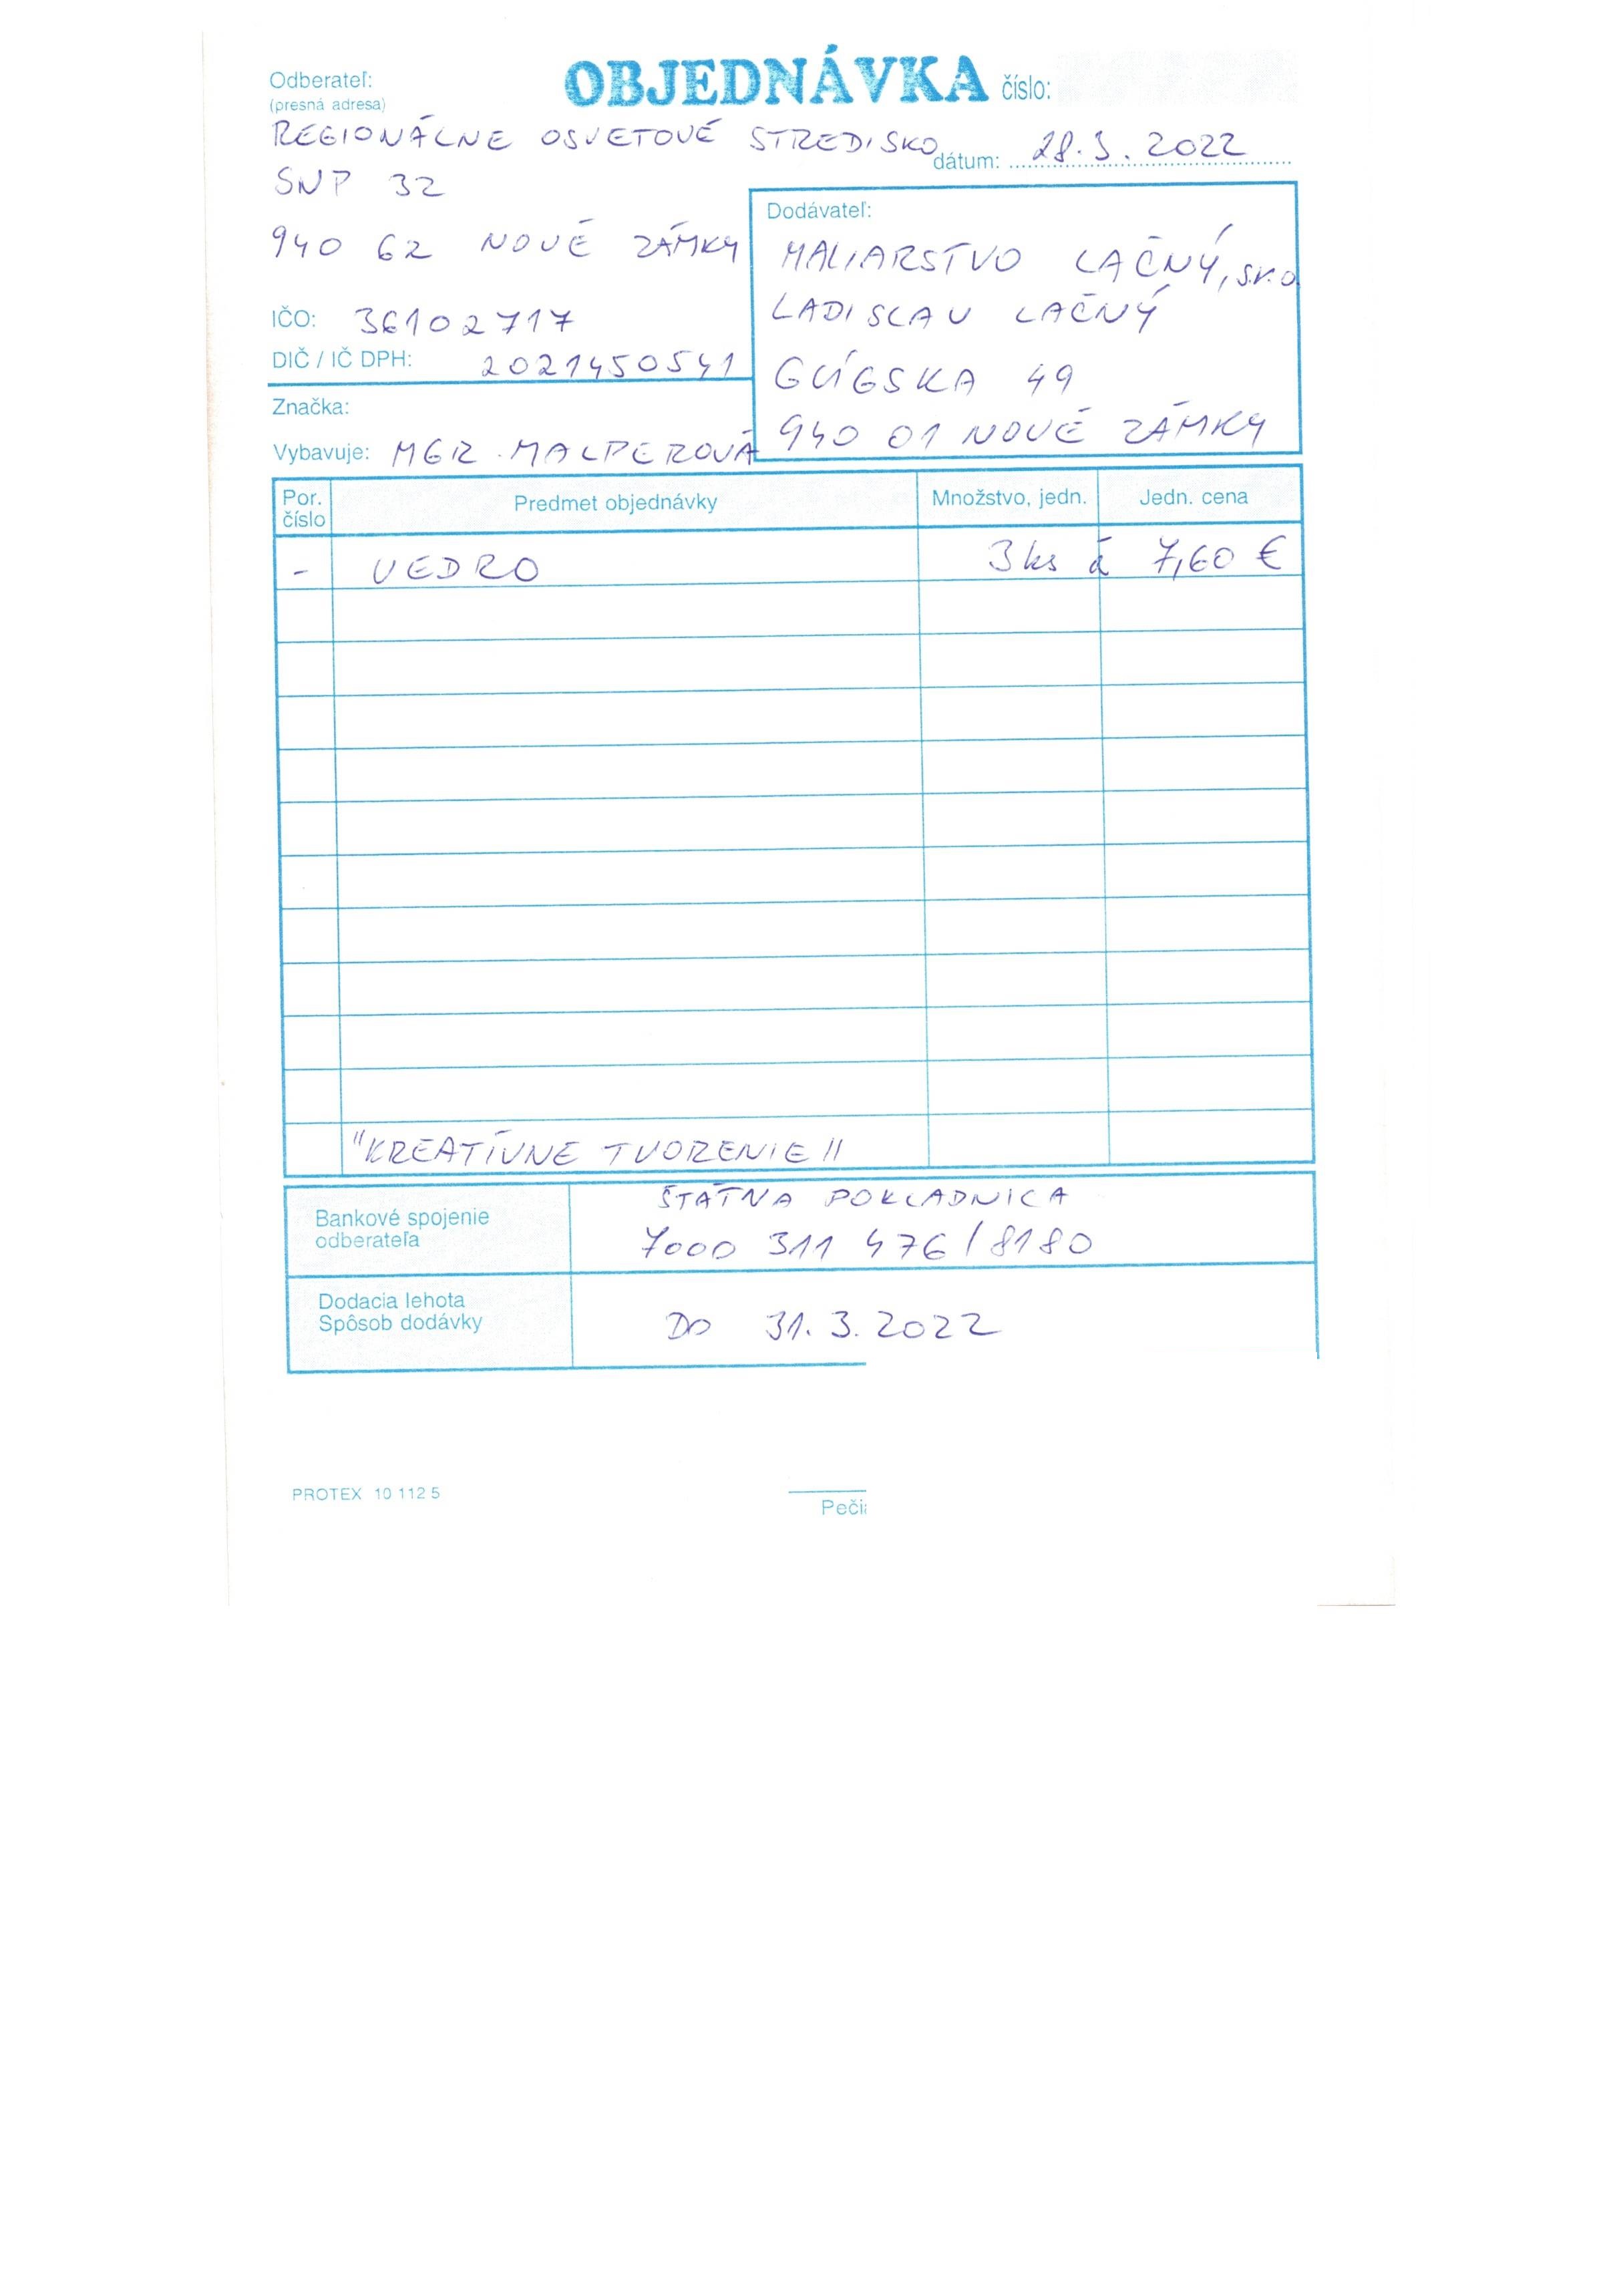 Odberateľ:
OBJEDNÁVKA číslo:
(presná adresa)
REGIONÁLNE OSVETOVÉ STREDISKO
dátum: 28.3.2022
SNP 32
940 62 NOVÉ ZÁMKY
Dodávateľ:
MALIARSTVO LAČNÝ, s.r.o
LADISLAV LAČNÝ
GÚGSKA 49
940 01 NOVÉ ZÁMKY
IČO: 36102717
DIČ / IČ DPH: 2021450541
Značka:
Vybavuje: MGR. MALPEROVÁ
Por. číslo Predmet objednávky Množstvo, jedn. Jedn. cena
- VEDRO 3 ks á 7,60 €
"KREATÍVNE TVORENIE"
Bankové spojenie
odberateľa
ŠTÁTNA POKLADNICA
7000 311 476/8180
Dodacia lehota
Spôsob dodávky
DO 31.3.2022
PROTEX 10 112 5
Peči